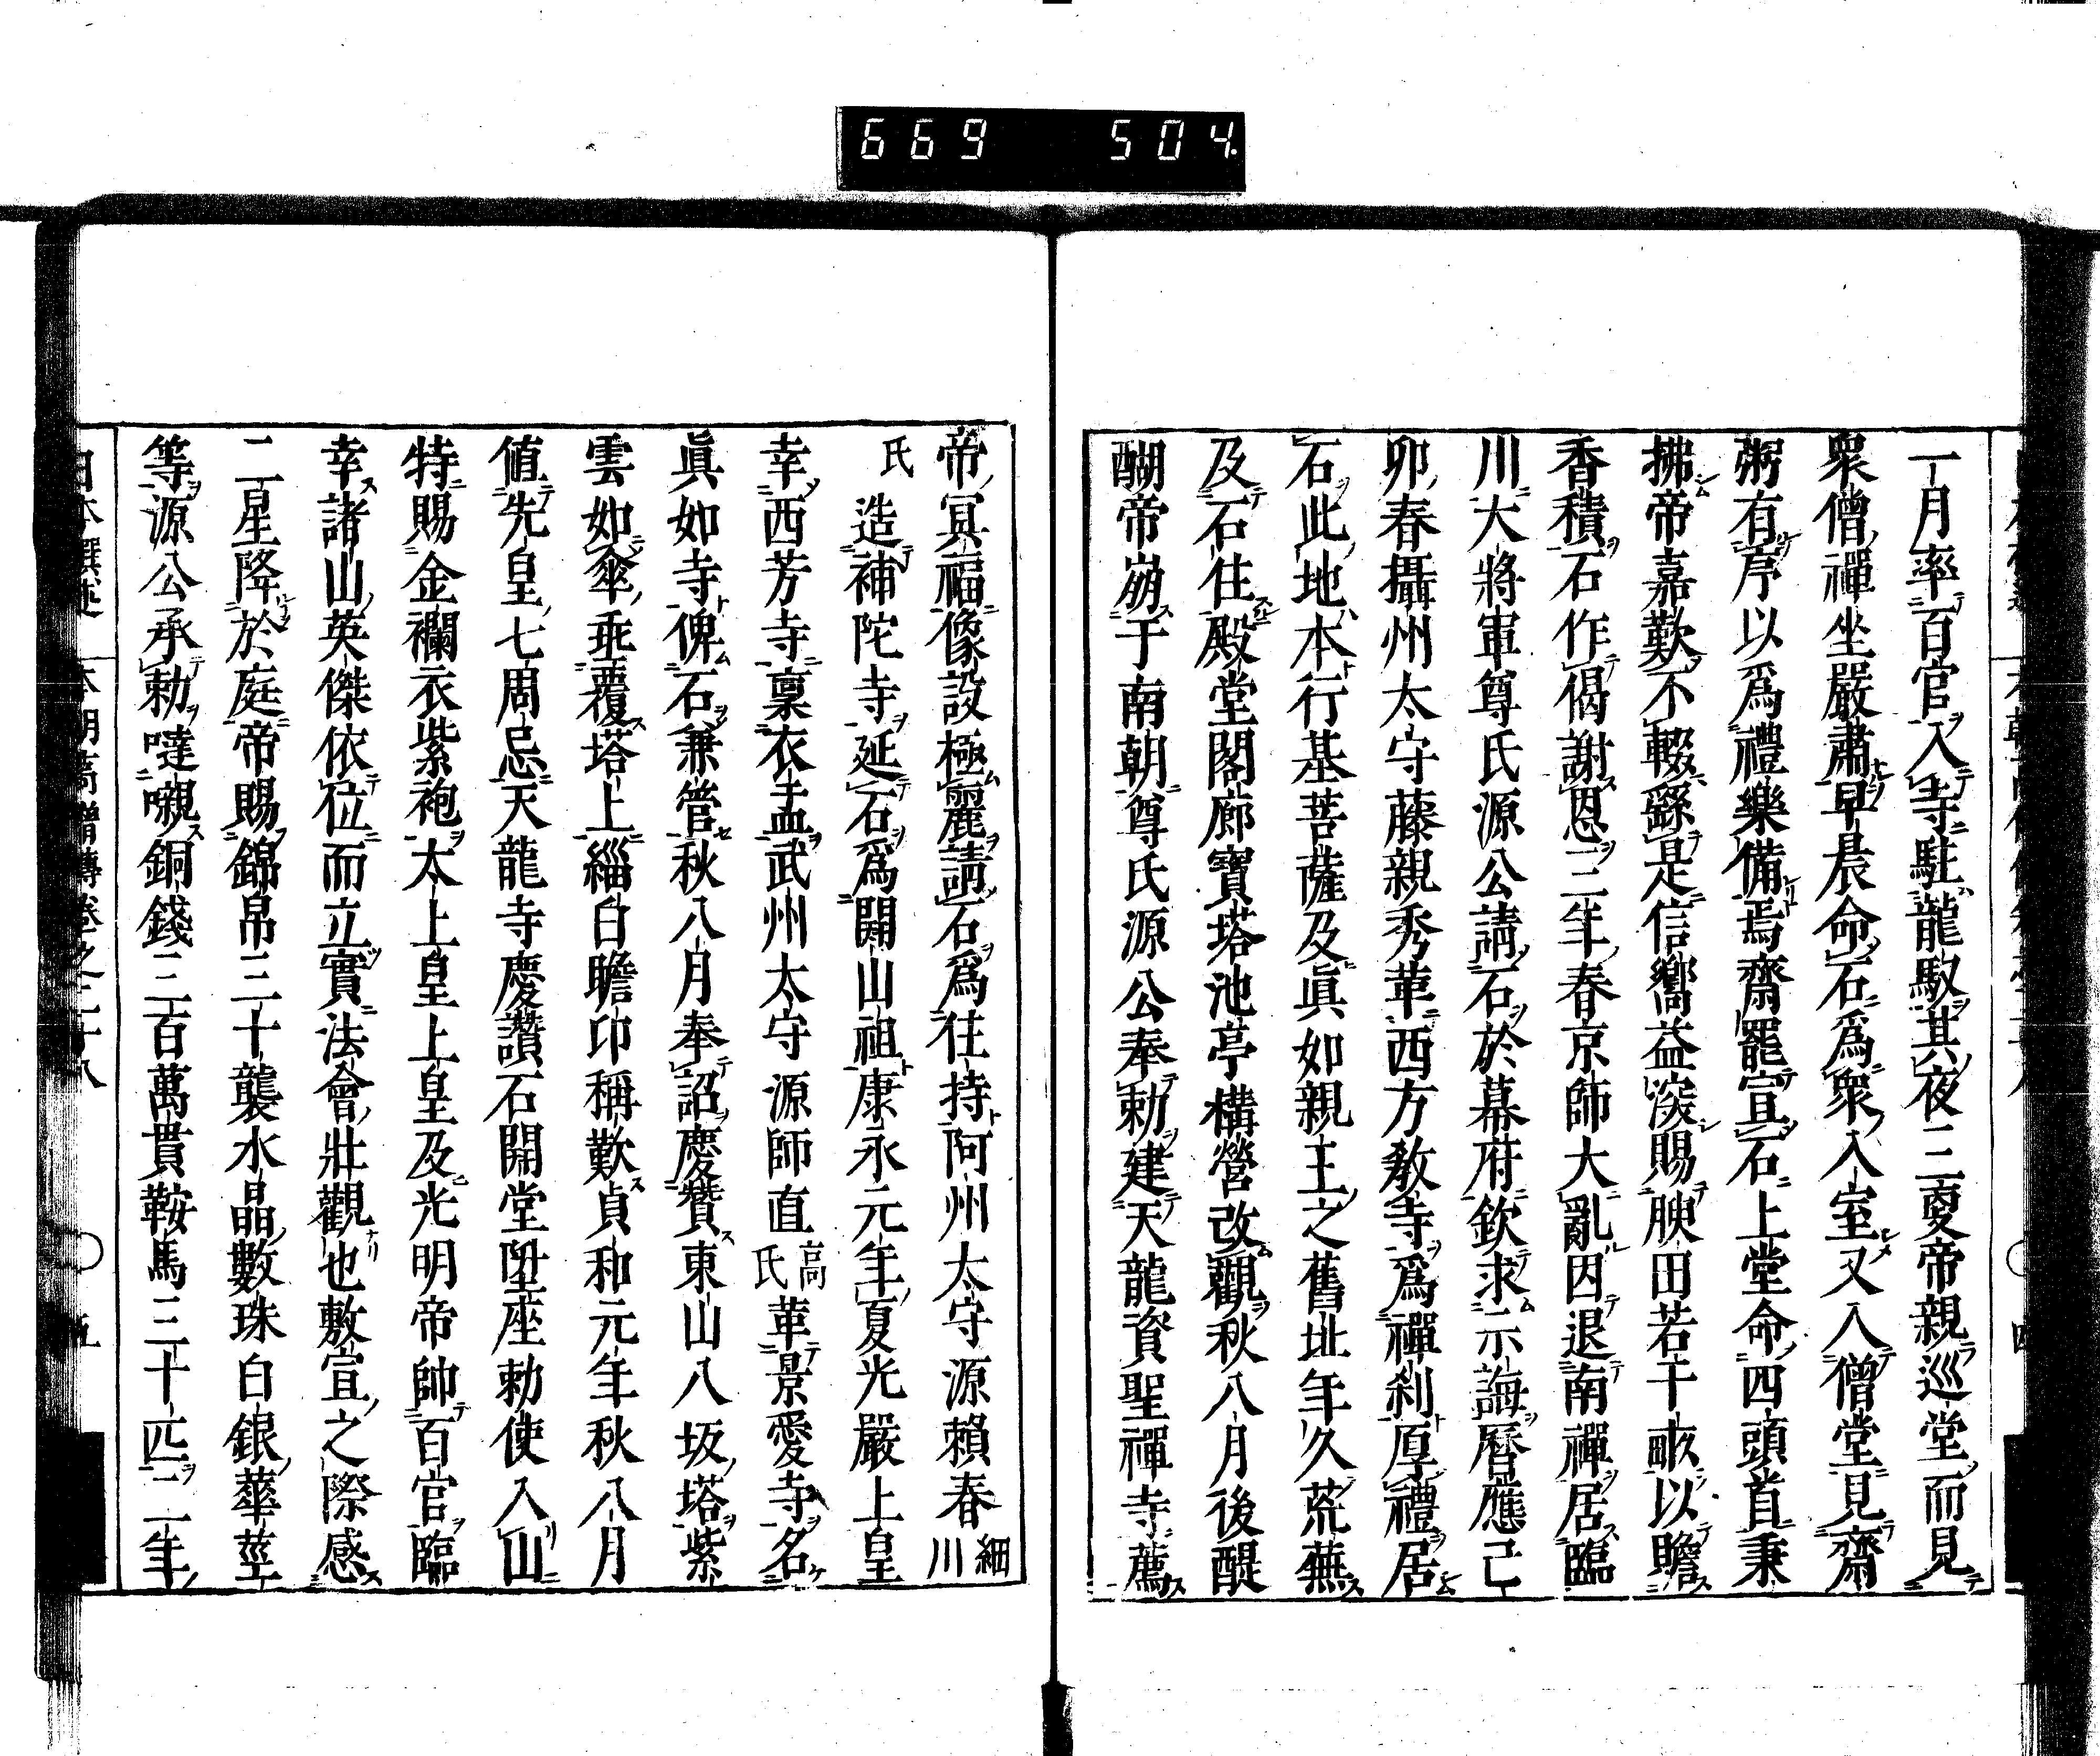 669 504
一月率百官入寺駐龍馭其夜三更帝親巡堂而見
衆僧禪坐嚴肅早晨命石爲衆入室又入僧堂見齋
粥有序以爲禮樂備焉齋罷宣石上堂命四頭首秉
拂帝嘉歎不輟繇是信嚮益深賜腴田若干畝以贍
香積石作偈謝恩三年春京師大亂因退南禪居臨
川大將軍尊氏源公請石於幕府欽求示誨曆應己
卯春攝州太守藤親秀革西方教寺爲禪刹厚禮居
石此地本行基菩薩及眞如親王之舊址年久荒蕪
及石住殿堂閣廊寶塔池亭構營改觀秋八月後醍
醐帝崩于南朝尊氏源公奉勅建天龍資聖禪寺薦
帝冥福像設極麗請石爲住持阿州太守源賴春細川
氏造補陀寺延石爲開山祖康永元年夏光嚴上皇
幸西芳寺稟衣盂武州太守源師直高氏革景愛寺名
眞如寺俾石兼管秋八月奉詔慶贊東山八坂塔紫
雲如傘乖覆塔上緇白瞻仰稱歎貞和元年秋八月
値先皇七周忌天龍寺慶讚石開堂陞座勅使入山
特賜金襴衣紫袍太上皇上皇及光明帝帥百官臨
幸諸山英傑依位而立實法會壯觀也敷宣之際感
二星降於庭帝賜錦帛三十襲水晶數珠白銀華莖
等源公承勅噠嚫銅錢三百萬貫鞍馬三十匹二年
日本撰述 本朝高僧傳卷之二十八 五